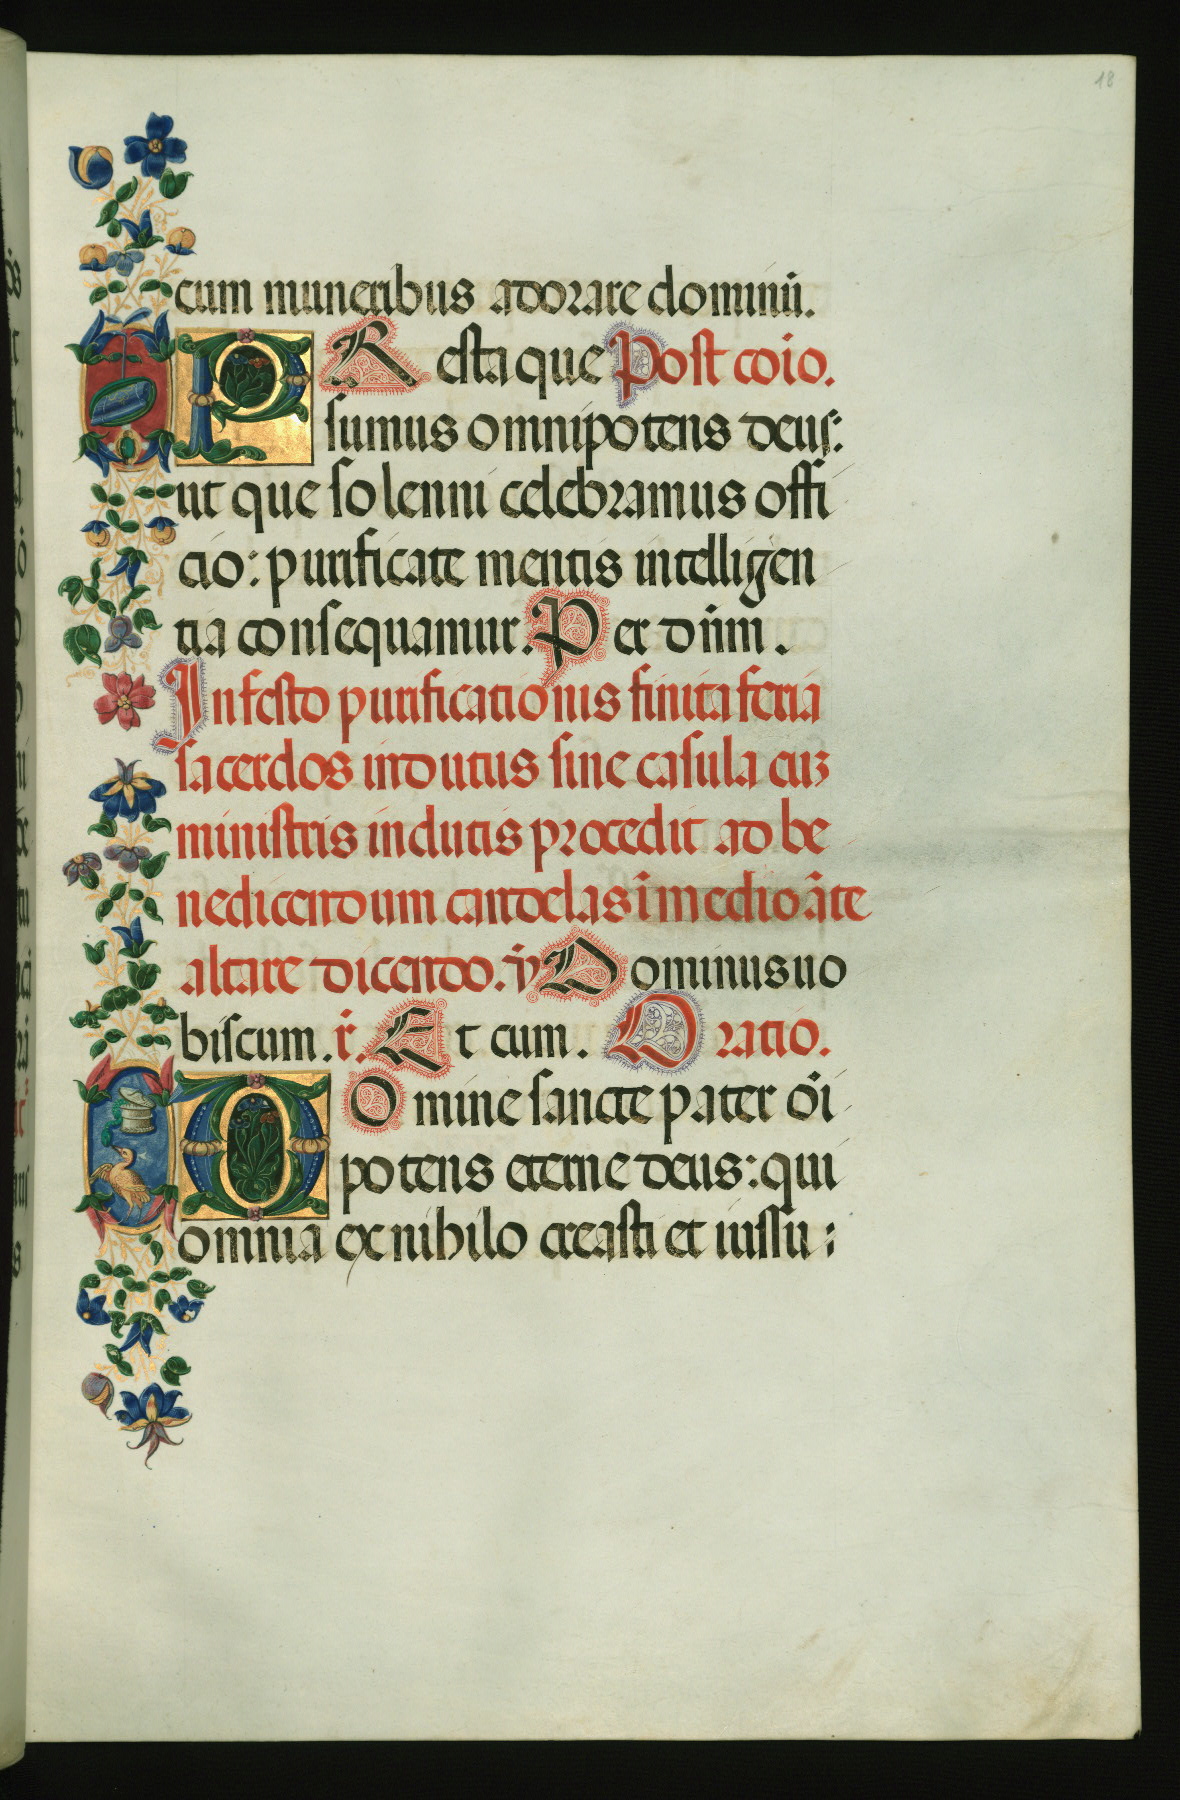 18
cum muneribus adorare dominū.
PResta que Post coīo.
sumus omnipotens deus:
ut que solenni celebramus offi
cio: purificate mentis intelligen
tia consequamur. Per dn̄m.
In festo purificationis finita feria
sacerdos indutus sine casula cuz
ministris indutis procedit ad be
nedicendum candelas ī medio āte
altare dicendo. v̄ Dominus uo
biscum. r̄. Et cum. Oratio.
DOmine sancte pater oī
potens eterne deus: qui
omnia ex nihilo creasti et iussu :